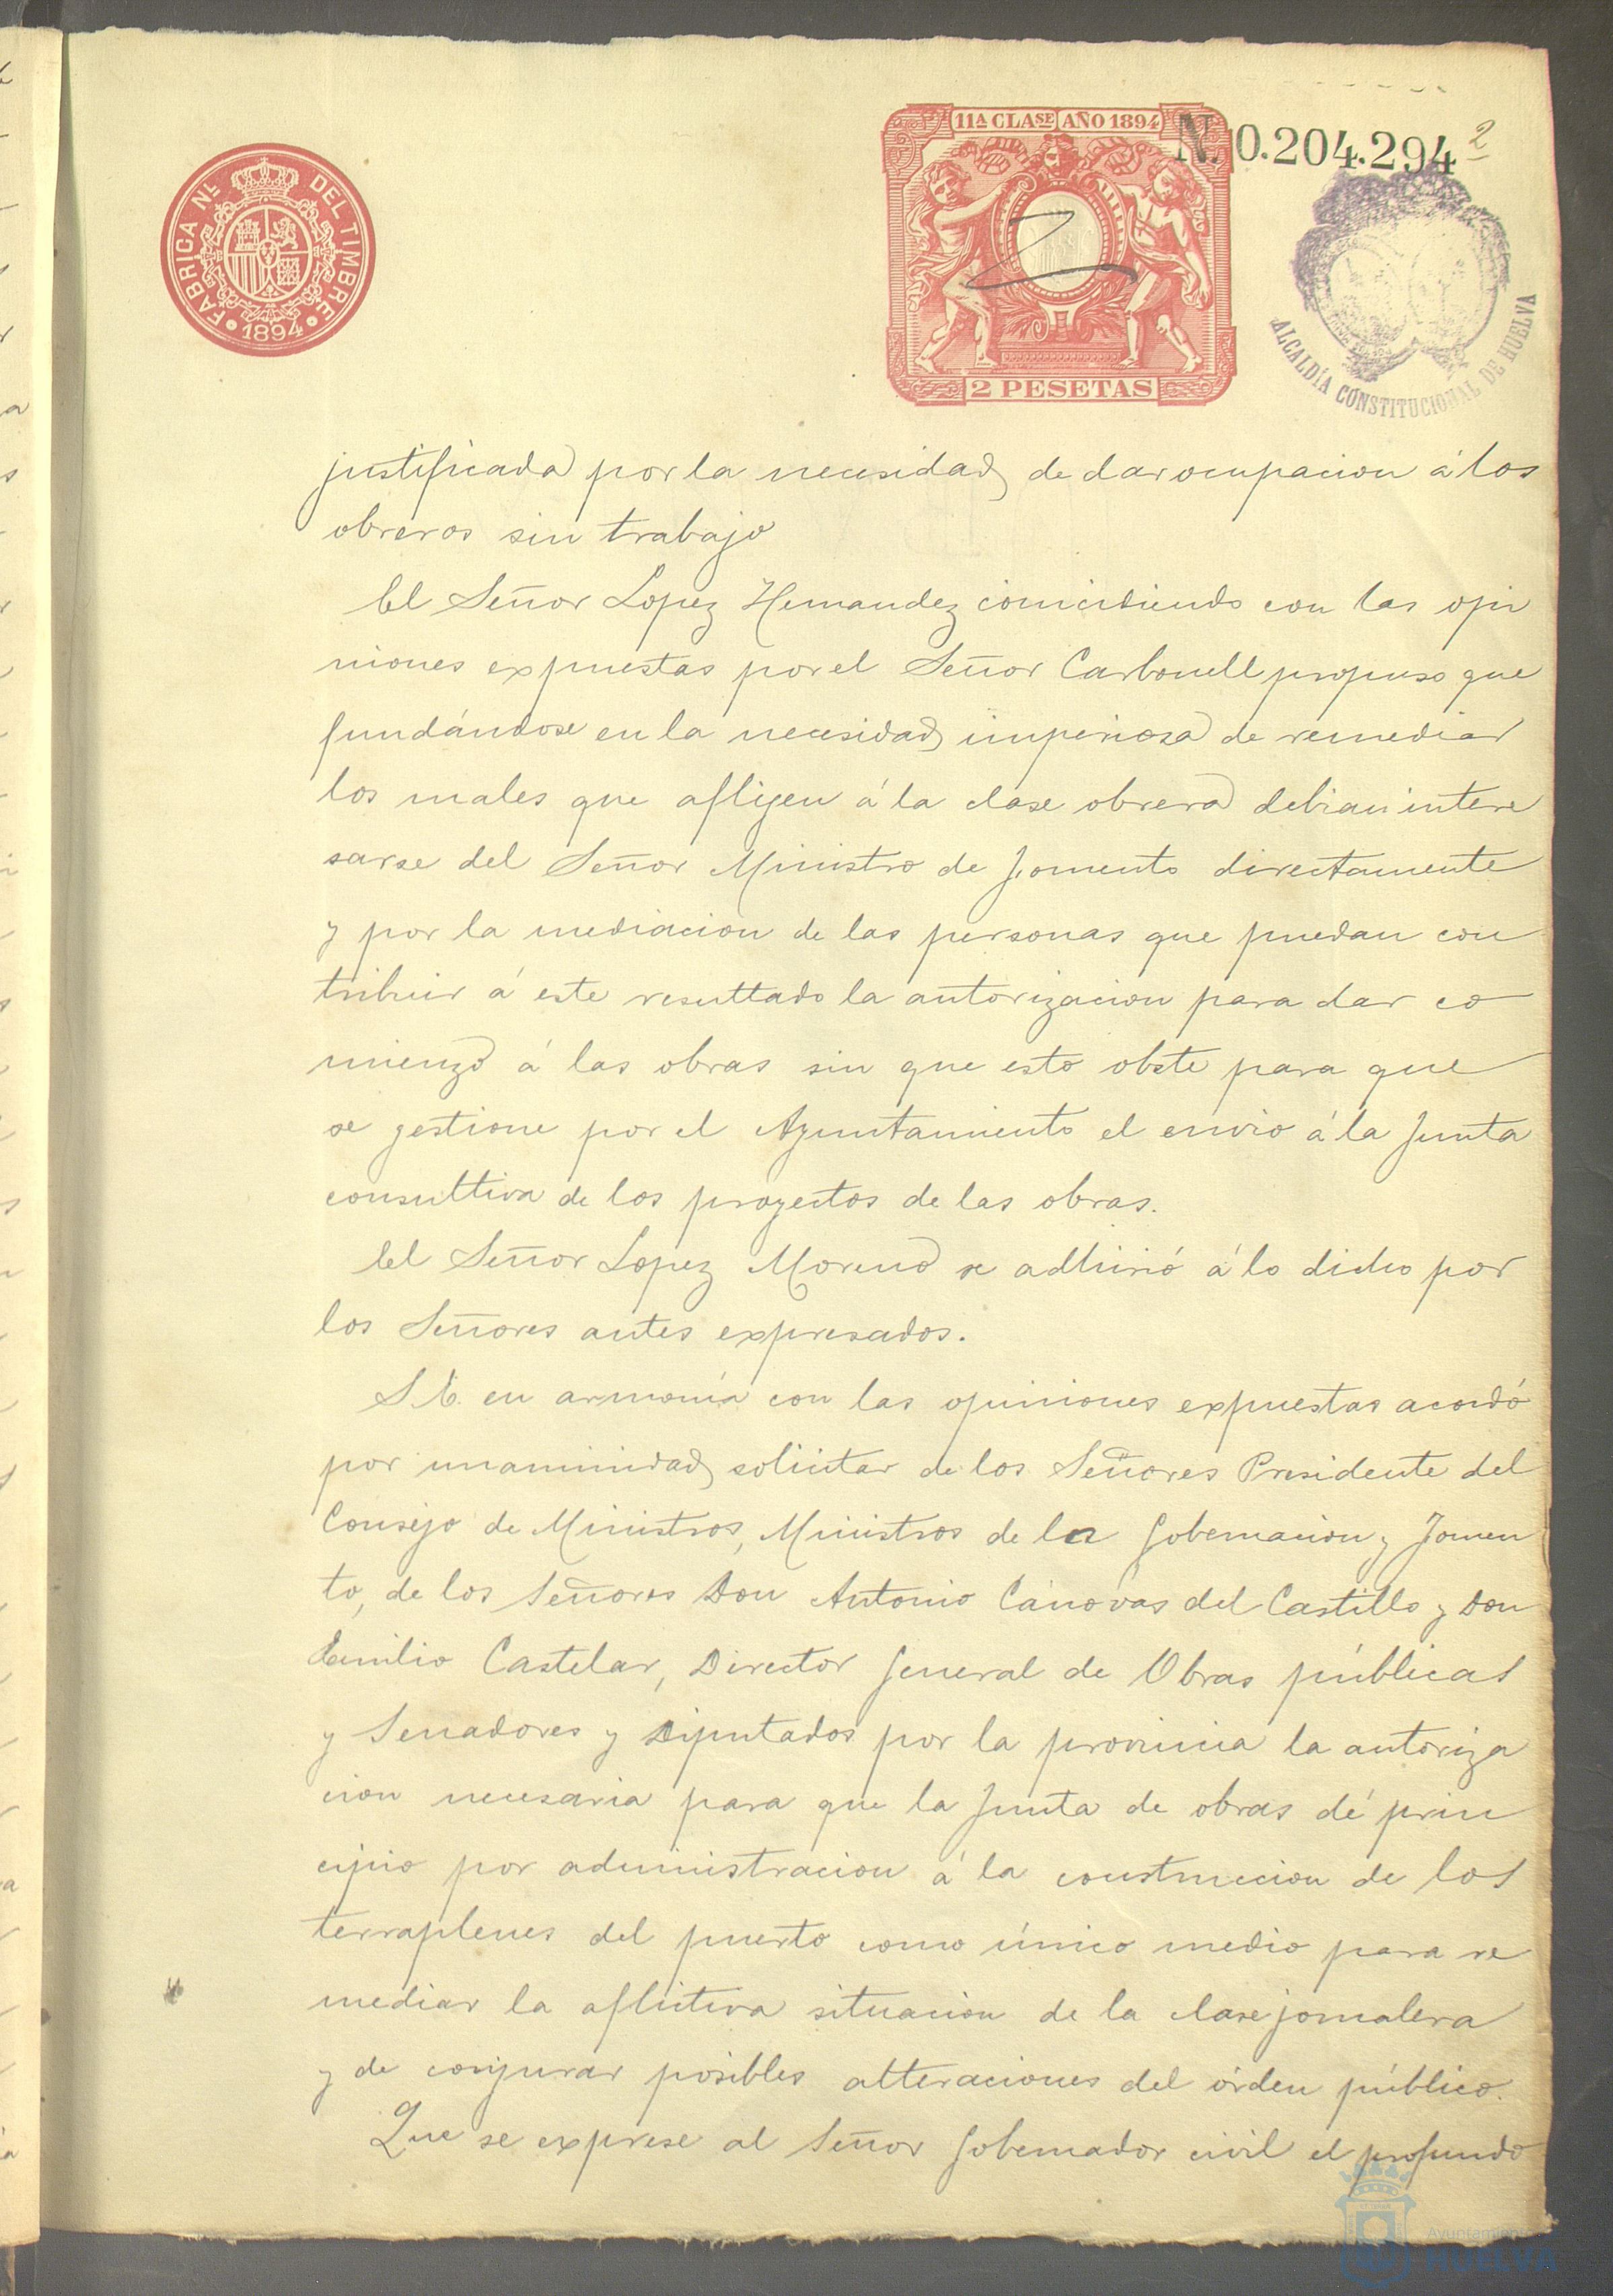 FÁBRICA NL. DEL TIMBRE
1894
11A CLASE AÑO 1894
N. 0.204.294
2
2 PESETAS
ALCALDÍA CONSTITUCIONAL DE HUELVA
justificada por la necesidad de dar ocupacion á los
obreros sin trabajo
El Señor Lopez Hernandez coincidiendo con las opi
niones expuestas por el Señor Carbonell propuso que
fundándose en la necesidad imperiosa de remediar
los males que afligen á la clase obrera debian intere
sarse del Señor Ministro de Fomento directamente
y por la mediacion de las personas que puedan con
tribuir á este resultado la autorizacion para dar co
mienzo á las obras sin que esto obste para que
se gestione por el Ayuntamiento el envio á la Junta
consultiva de los proyectos de las obras.
El Señor Lopez Moreno se adhirió á lo dicho por
los Señores antes expresados.
S.E. en armonía con las opiniones expuestas acordó
por unanimidad solicitar de los Señores Presidente del
Consejo de Ministros, Ministros de la Gobernacion y Fomen
to, de los Señores Don Antonio Cánovas del Castillo y Don
Emilio Castelar, Director General de Obras públicas
y Senadores y Diputados por la provincia la autoriza
cion necesaria para que la Junta de obras dé prin
cipio por administracion á la construccion de los
terraplenes del puerto como único medio para re
mediar la aflictiva situacion de la clase jornalera
y de conjurar posibles alteraciones del órden público.
Que se exprese al Señor Gobernador civil el profundo
Ayuntamiento
HUELVA